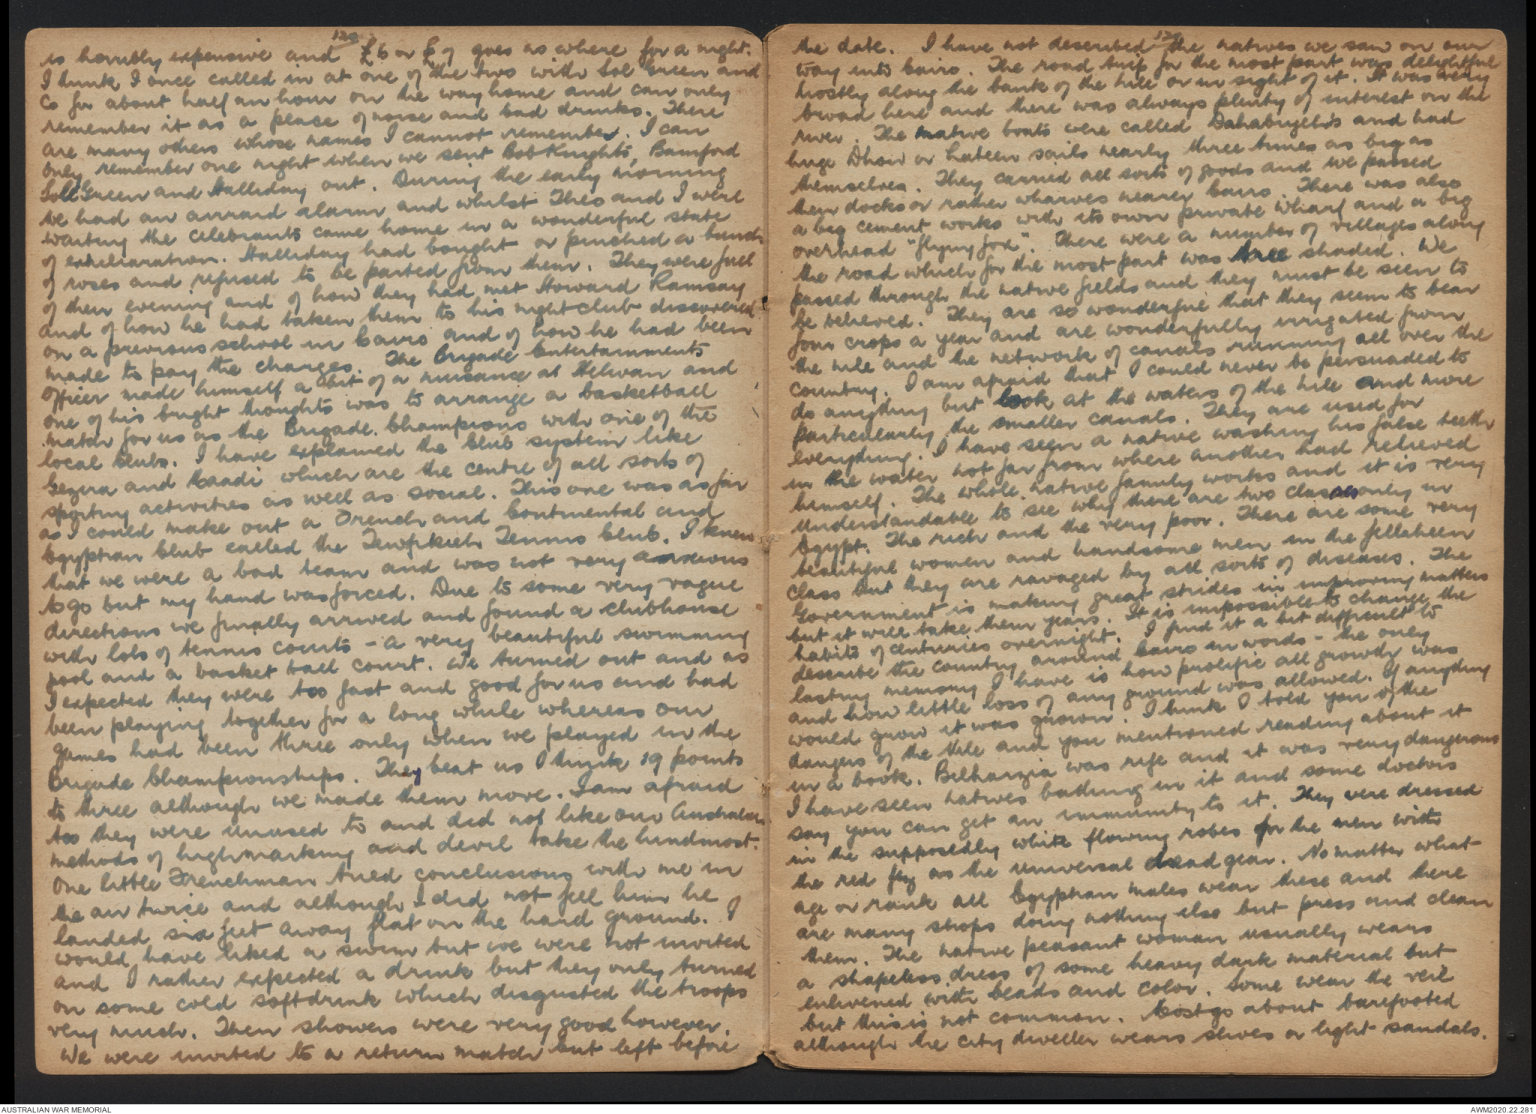 128
is horribly expensive and £6 or £7 goes no where for a night.
I think I once called in at one of the two with Sol Green and
Co for about half an hour on the way home and can only
remember it as a place of noise and bad drinks. There
are many others whose names I cannot remember. I can
only remember one night when we sent Bob Knights, Bamford
Sol Green and Halliday out. During the early morning
we had an airraid alarm and whilst Theo and I were
waiting the celebrants came home in a wonderful state
of exhiliaration. Halliday had bought or pinched a bunch
of roses and refused to be parted from them. They were full
of their evening and of how they had met Howard Ramsay
and of how he had taken them to his nightclub discovered
on a previous school in Cairo and of how he had been
made to pay the charges. The Brigade Entertainments
Officer made himself a bit of a nuisance at Helwan and
one of his bright thoughts was to arrange a basketball
match for us as the Brigade Champions with one of the
local clubs. I have explained the club system like
Gezira and Maadi which are the centre of all sorts of
sporting activities as well as social. This one was as far
as I could make out a French and Continental and
Egyptian Club called the Tewfikieh Tennis Club. I knew
that we were a bad team and was not very anxious
to go but my hand was forced. Due to some very vague
directions we finally arrived and found a clubhouse
with lots of tennis courts - a very beautiful swimming
pool and a basket ball court. We turned out and as
I expected they were too fast and good for us and had
been playing together for a long while whereas our
games had been three only when we played in the
Brigade Championships. They beat us I think 19 points
to three although we made them move. I am afraid
too they were unused to and did not like our Australian
methods of highmarking and devil take the hindmost.
One little Frenchman tried conclusions with me in
the air twice and although I did not feel him he
landed six feet away flat on the hard ground. I
would have liked a swim but we were not invited
and I rather expected a drink but they only turned
on some cold softdrink which disgusted the troops
very much. Their showers were very good however.
We were invited to a return match but left before
129
the date. I have not described the natives we saw on our
way into Cairo. The road trip for the most part was delightful
mostly along the bank of the Nile or in sight of it. It was very
broad here and there was always plenty of interest on the
river. The native boats were called and had
huge Dhow or Lateen sails nearly three times as big as
themselves. They carried all sorts of goods and we passed
their docks or rather wharves nearer Cairo. There was also
a big cement works with its own private wharf and a big
overhead "flying fox". There were a number of villages along
the road which for the most part was tree shaded. We
passed through the native fields and they must be seen to
be believed. They are so wonderful that they seem to bear
four crops a year and are wonderfully irrigated from
the nile and the network of canals running all over the
country. I am afraid that I could never be persuaded to
do anything but look at the waters of the nile and more
particularly the smaller canals. They are used for
everything. I have seen a native washing his false teeth
in the water not far from where another had relieved
himself. The whole native family works and it is very
understandable to see why there are two classes only in
Egypt. The rich and the very poor. There are some very
beautiful women and handsome men in the fellaheen
class but they are ravaged by all sorts of diseases. The
Government is making great strides in improving matters
but it will take them years. It is impossible to change the
habits of centuries overnight. I find it a bit difficult to
describe the country around Cairo in words - the only
lasting memory I have is how prolific all growth was
and how little loss of any ground was allowed. If anything
would grow it was grown. I think I told you of the
dangers of the Nile and you mentioned reading about it
in a book. Bilharzia was rife and it was very dangerous
I have seen natives bathing in it and some doctors
say you can get an immunity to it. They were dressed
in the supposedly white flowing robes for the men with
the red fez as the universal headgear. No matter what
age or rank all Egyptian males wear these and there
are many shops doing nothing else but press and clean
them. The native peasant woman usually wears
a shapeless dress of some heavy dark material but
enlivened with beads and color. Some wear the veil
but this is not common. Most go about barefooted
although the city dweller wears shoes or light sandals.
AUSTRALIAN WAR MEMORIAL
AWM2020.22.281